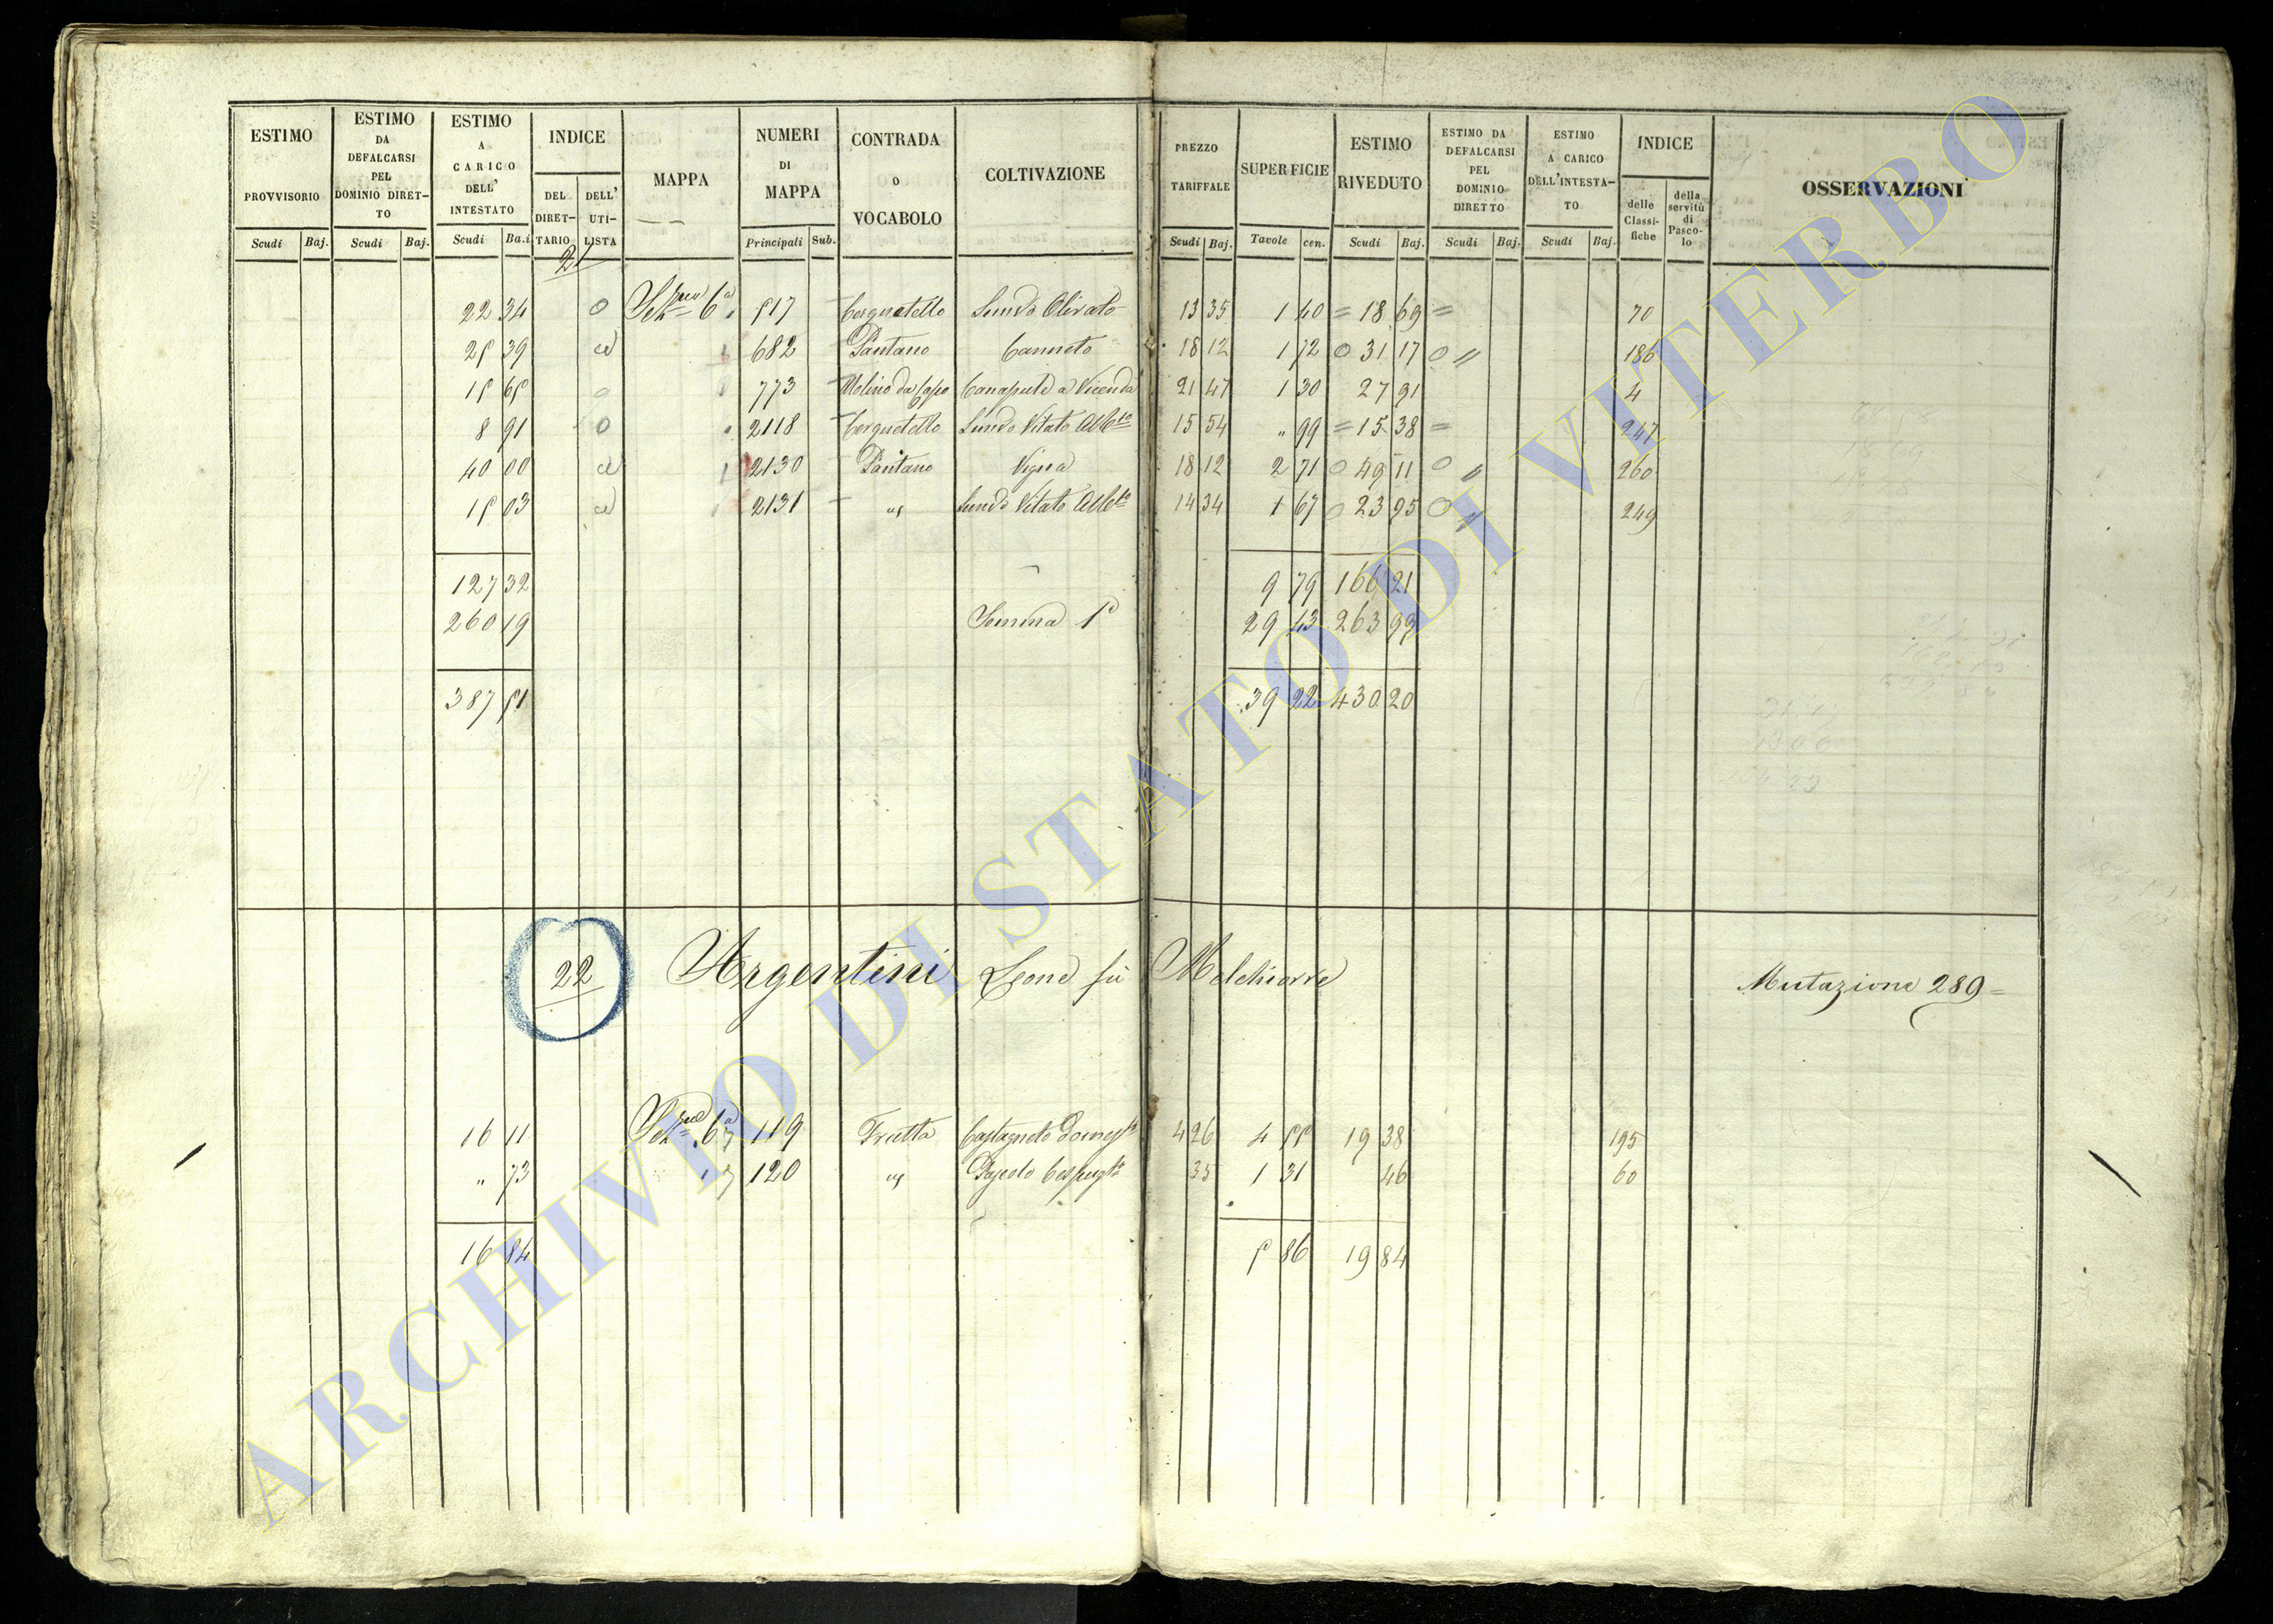 ESTIMO PROVVISORIO | ESTIMO DA DEFALCARSI PEL DOMINIO DIRETTO | ESTIMO A CARICO DELL' INTESTATO | INDICE DEL DIRETTARIO | DELL' UTILISTA | MAPPA | NUMERI DI MAPPA | CONTRADA O VOCABOLO | COLTIVAZIONE | PREZZO TARIFFALE | SUPERFICIE | ESTIMO RIVEDUTO | ESTIMO DA DEFALCARSI PEL DOMINIO DIRETTO | ESTIMO A CARICO DELL'INTESTATO | INDICE delle Classifiche | della servitù di Pascolo | OSSERVAZIONI
Scudi Baj. | Scudi Baj. | Scudi Ba.i | Principali Sub. | Scudi Baj. | Tavole cen. | Scudi Baj. | Scudi Baj. | Scudi Baj.
21
22 34 O Sez.ne 6a 517 Cerquetello Semvo Olivato 13 35 1 40 = 18 69 = 70
25 39 682 Pantano Canneto 18 12 1 72 O 31 17 O " 186
15 65 O 773 Molino da Capo Canapule a Vicenda 21 47 1 30 27 91 4
8 91 O 2118 Cerquetello Semvo Vitato Albto 15 54 " 99 = 15 38 = 247
40 00 2130 Pantano Vigna 18 12 2 71 O 49 11 O " 260
15 03 2131 " Semvo Vitato Albto 14 34 1 67 O 23 95 O " 249
127 32 9 79 166 21
260 19 Somma 1a 29 43 263 99
387 51 39 22 430 20
22 Argentini Leone fù Melchiorre Mutazione 289 =
16 11 Sez.ne 6a 119 Fratta Castagneto Domesto 4 26 4 55 19 38 195
" 73 120 " Pascolo Cespugto 35 1 31 46 60
16 84 5 86 19 84
ARCHIVIO DI STATO DI VITERBO